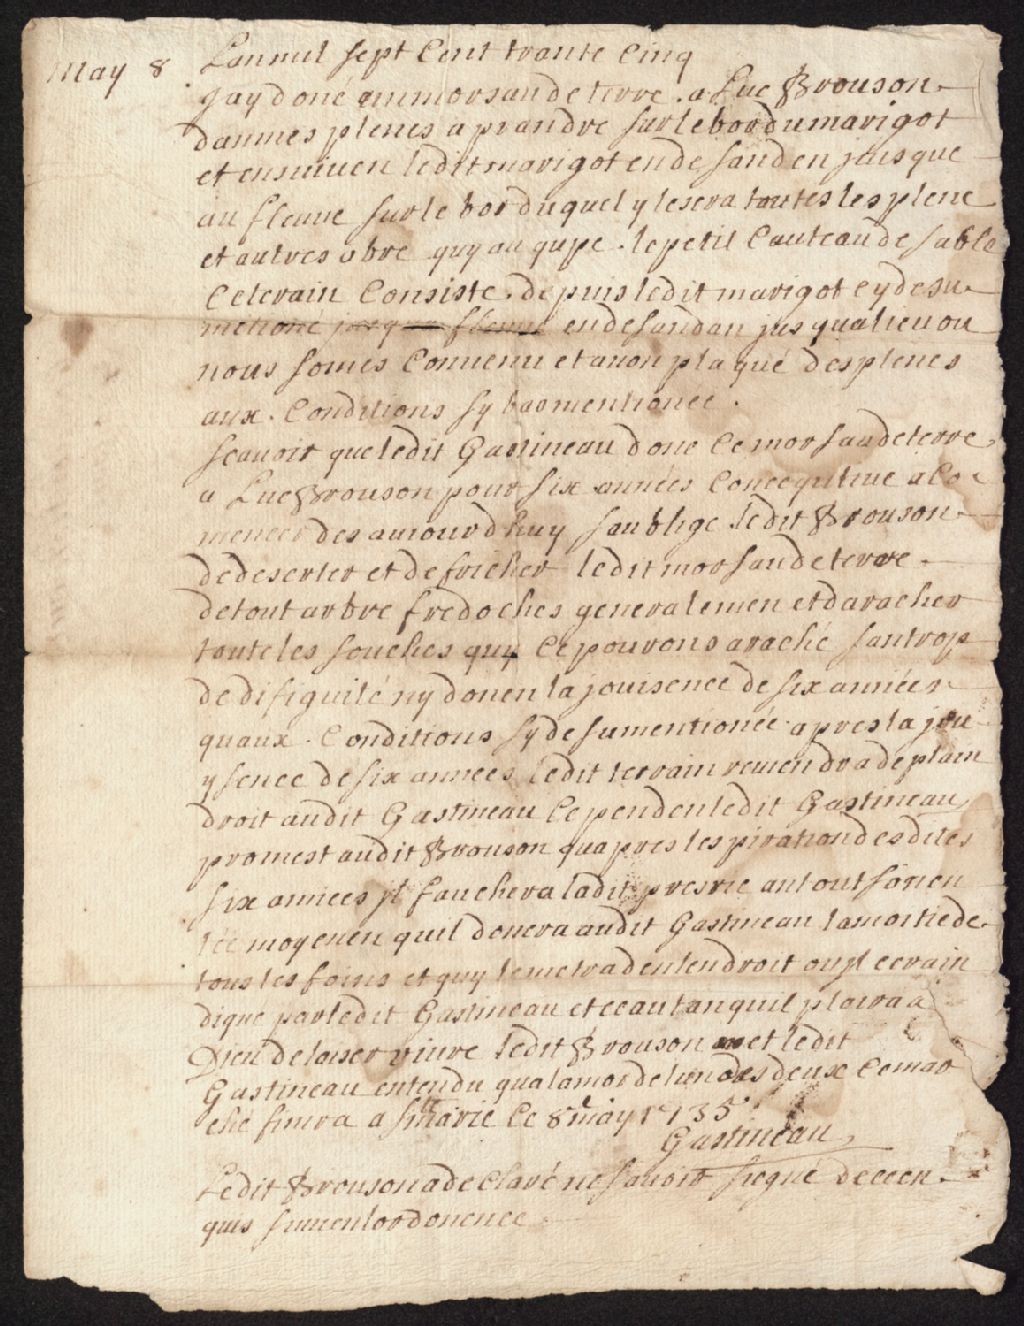 May 8
Lanmil sept Cent trante Cinq
Jay doné un morsaude terre . a Luc Brouson
dannes plenes a prandre surlebordumarigot
et ensuiven ledit marigot en de sanden jusque
au fleuve surle borduquel y lesera toutes les plene
et autres abre quy au qupe . le petit Cauteau de sable
Ceterain Consiste . depuis ledit marigot cy desu
metioné en desandan jus qualieu ou
nous somes Convenu et avon plaqué des plenes
aux . Conditions sy bas mentionée .
scavoir queledit Gastineau done Ce morsaudeterre
a Luc Brouson pour six années Concequtive a Co
mencer des aujourdhuy saublige ledit Brouson
dedeserter et defricher ledit morsaudeterre .
detout arbre fredoches generalemen et daracher
toute les souches quy Ce pourons araché santrop
de difiquilté ny donen la jouisence de six années
quaux . Conditions sy desumentionée apres la jou
ysence de six annees ledit terrain reviendra de plain
droit audit Gastineau Cependen ledit Gastineau
promest audit Brouson quapres lespiration desdites
six annees jl fauchera ladit presrie antout son en
tée moyenen quil donera audit Gastineau lamoitiede
tous les foins et quy lemetra den lendroit ou jl cerain
dique par ledit Gastineau et ce autan quil plaira a
Dieu de laiser vivre ledit Brouson et ledit
Gastineau entendu qualamor delun des deux Cemar
ché finira a Ste marie Ce 8e may 1735
Gastineau
Ledit Brouson a declaré ne savoir signé de ceen
quis suivenlordonence